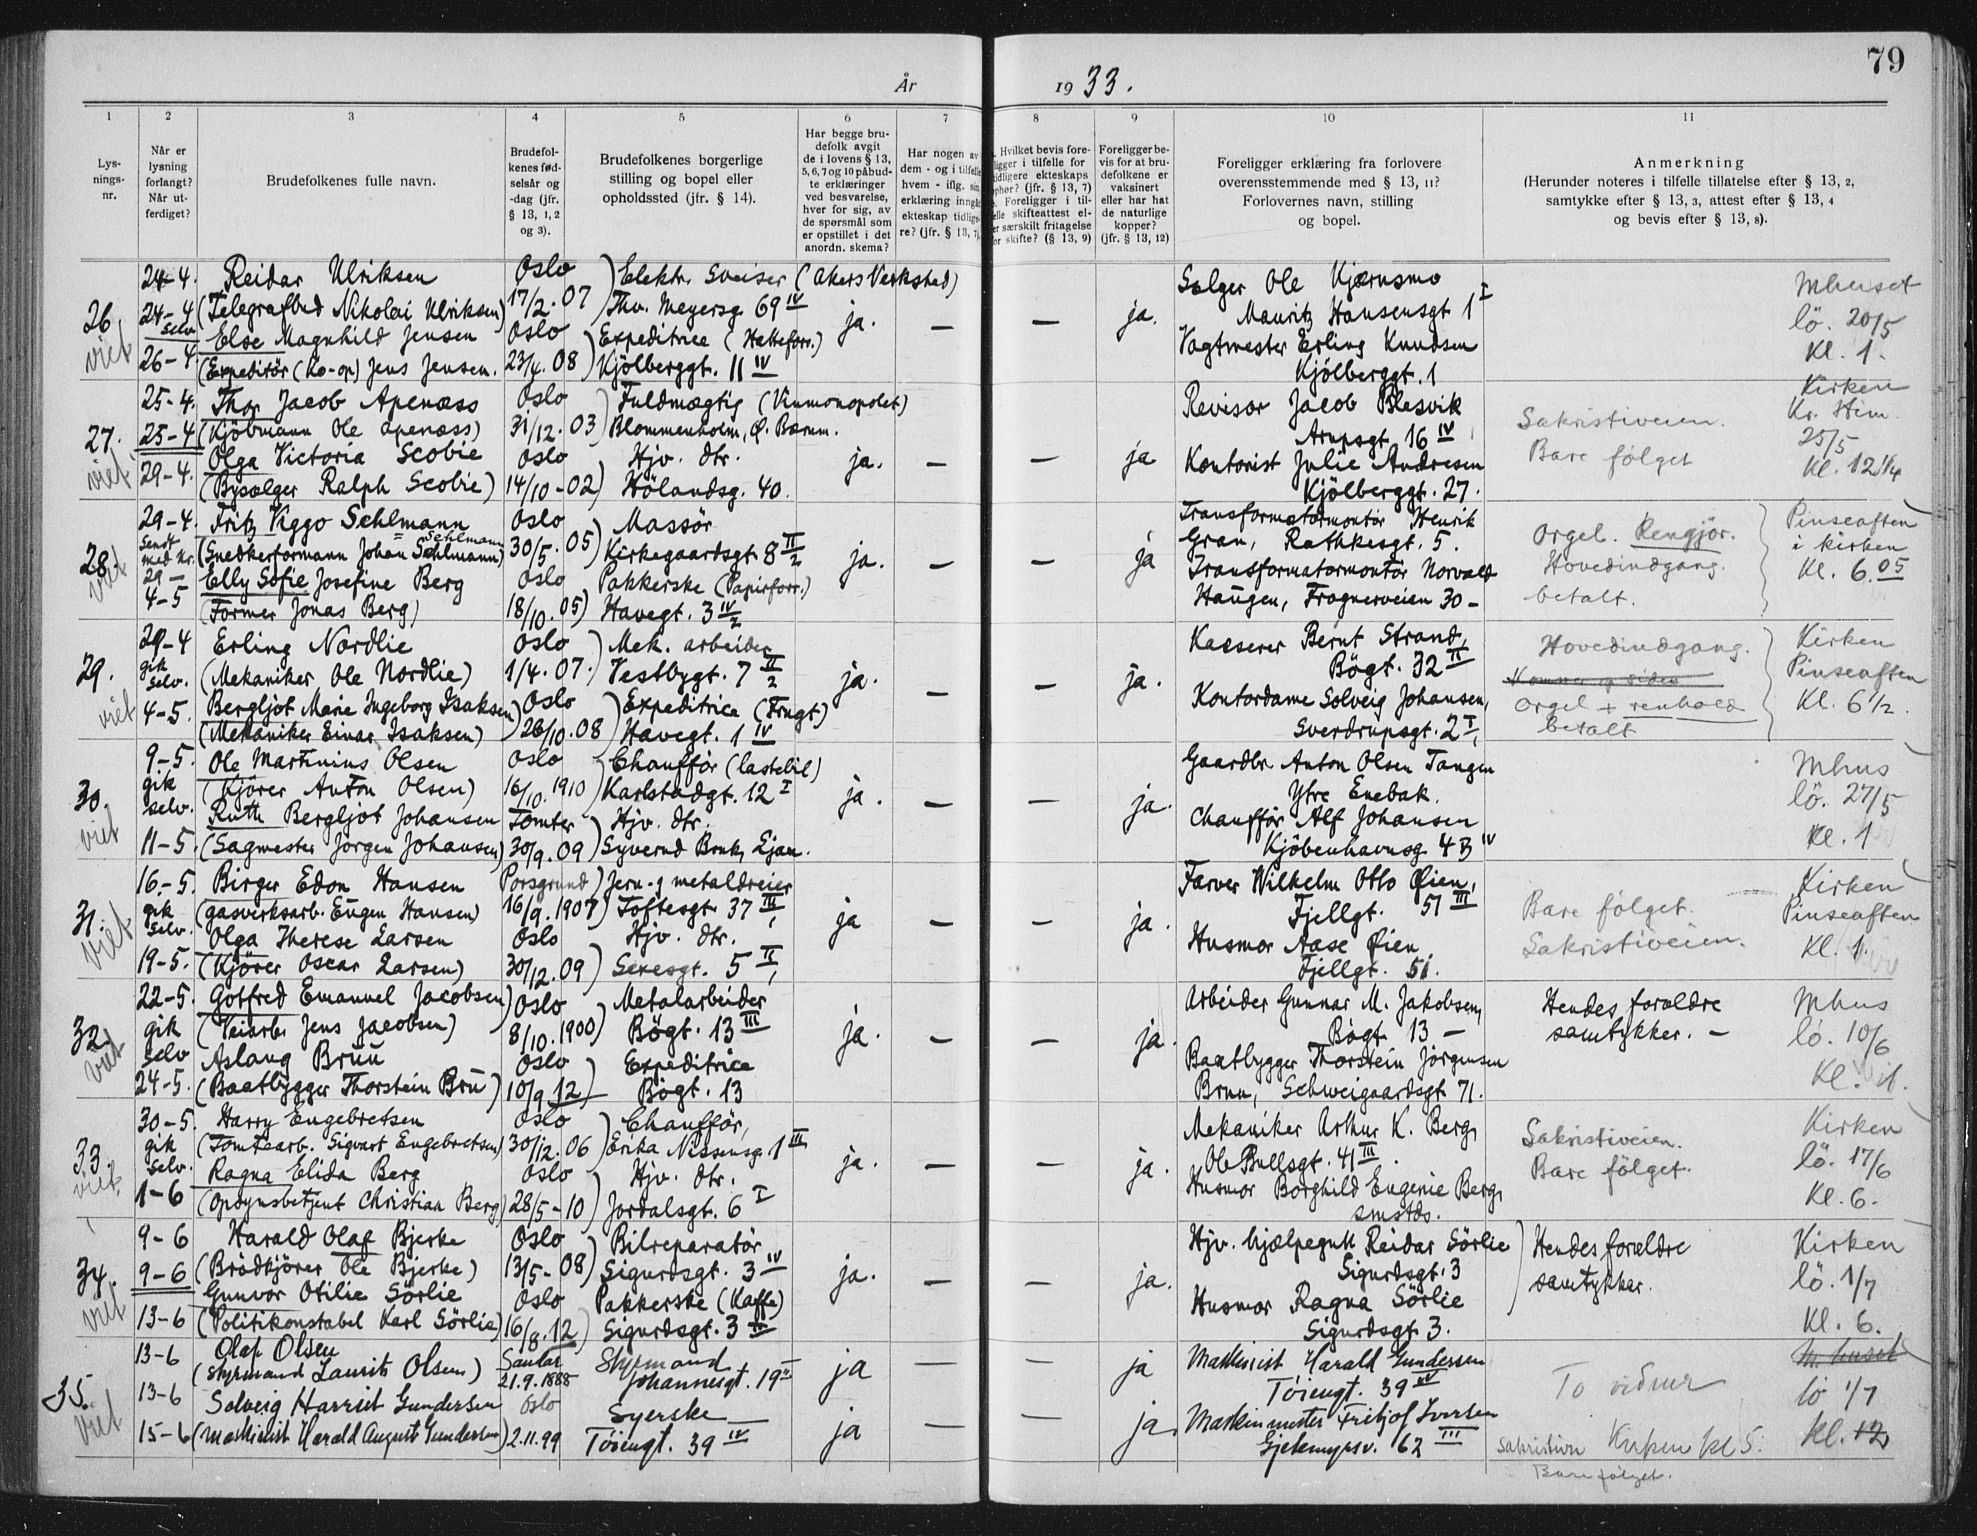 79
År 1933.
1 2 3 4 5 6 7 8 9 10 11
Lys-
nings-
nr.
Når er
lysning
forlangt?
Når ut-
ferdiget?
Brudefolkenes fulle navn.
Brudefol-
kenes fød-
selsår og
-dag (jfr.
§ 13, 1, 2
og 3).
Brudefolkenes borgerlige
stilling og bopel eller
opholdssted (jfr. § 14).
Har begge bru-
defolk avgit
de i lovens § 13,
5, 6, 7 og 10 påbud-
te erklæringer
ved besvarelse,
hver for sig, av
de spørsmål som
er opstillet i det
anordn. skema?
Har nogen av
dem - og i tilfelle
hvem - iflg. sin
erklæring inngått
ekteskap tidlige-
re? (jfr. § 13, 7)
Hvilket bevis fore-
ligger i tilfelle for
tidligere ekteskaps
ophør? (jfr. § 13, 7)
Foreligger i til-
felle skifteattest el-
er særskilt fritagelse
for skifte? (§ 13, 9)
Foreligger be-
vis for at bru-
defolkene er
vaksinert
eller har hat
de naturlige
kopper?
(jfr. § 13, 12)
Foreligger erklæring fra forlovere
overensstemmende med § 13, 11?
Forlovernes navn, stilling
og bopel.
Anmerkning
(Herunder noteres i tilfelle tillatelse efter § 13, 2,
samtykke efter § 13, 3, attest efter § 13, 4
og bevis efter § 13, 8).
24-4. Reidar Ulriksen Oslo Elektr. Sveiser (Akers Verksted) Selger Ole Kjærnsmo Mhuset
26. 24-4 (Telegrafbud Nikolai Ulriksen) 17/2. 07 Thv. Meyersg. 69 IV ja. — — ja. Mauritz Hansensgt 1 I lö. 20/5
viet selv Else Magnhild Jensen Oslo Expeditrice (Hatteforr.) Vagtmester Erling Knudsen Kl. 1.
26-4. (Expeditör (Ko-op) Jens Jensen. 23/4. 08) Kjölberggt. 11 IV Kjölberggt. 1
25-4. Thor Jacob Apenæss Oslo Fuldmægtig (Vinmonopolet) Revisor Jacob Blesvik Kirken
27. 25-4 (Kjöbmann Ole Apenæss) 31/12. 03) Blommenholm, Ö. Bærum. Arupsgt 16 IV Sakristiveien. Kr. Him. 25/5
viet Olga Victoria Scobie Oslo Hjv. dtr. ja. — — ja Kontorist Julie Andresen Bare fölget Kl. 12 1/4
29-4. (Bysælger Ralph Scobie) 14/10-02) Hölandsg. 40. Kjölberggt. 27.
29-4. Fritz Viggo Sehlmann Oslo Massör Transformatormontör Henrik Pinseaften
28. Sendt med kr. (Snedkerformann Johan Sehlmann) Sehlmann 30/5. 05) Kirkegaardsgt. 8 II/2 ja. — — ja Gran, Rathkesgt. 5. Orgel. Rengjör. i kirken
viet 29- Elly Sofie Josefine Berg Oslo Pakkerske (Papirforr.) Transformatormontör Norvald Hovedindgang. Kl. 6.05
4-5 (Former Jonas Berg) 18/10. 05) Havegt. 3 IV/2 Haugen, Frognerveien 30 - betalt.
29-4 Erling Nordlie Oslo Mek. arbeider Kasserer Bernt Strand, Hovedindgang. Kirken
29. gik selv. (Mekaniker Ole Nordlie) 1/4. 07.) Vestbygt. 7 II/2 ja. — — ja. Bögt. 32 II Pinseaften
viet 4-5. Bergljot Marie Ingeborg Isaksen) Oslo Expeditrice (Frugt) Kontordame Solveig Johansen, Orgel + renhold Kl. 6 1/2.
(Mekaniker Einar Isaksen) 26/10. 08 Havegt. 1 IV Sverdrupsgt. 2 I, betalt
9-5. Ole Martinius Olsen Oslo Chaufför (lastebil) Gaardbr. Anton Olsen Tangen Mhus
30. gik selv. (Kjörer Anton Olsen) 16/10. 1910 Karlstadgt. 12 I ja. — — ja. Ytre Enebak. lö. 27/5
viet Ruth Bergljot Johansen Tomter Hjv. dtr. Chaufför Alf Johansen Kl. 1
11-5. (Sagmester Jörgen Johansen) 30/9. 09) Syverud Bruk, Ljan. Kjöbenhavnsg. 4 B IV
16.-5. Birger Edon Hansen Porsgrund) Jern- g metaldreier Farver Wilhelm Otto Øien, Kirken
31. gik selv. (gasverksarb. Eugen Hansen) 16/9. 1907) Toftesgt 37 III, ja — — ja. Fjellgt. 51 III Bare fölget. Pinseaften
viet Olga Therese Larsen Oslo Hjv. dtr. Husmor Aase Øien, Sakristiveien. Kl. 1.
19-5. (Kjörer Oscar Larsen) 30/12. 09) Sexesgt. 5 II, Fjellgt. 51.
22-5. Gotfred Emanuel Jacobsen) Oslo Metalarbeider Arbeider Gunnar M. Jakobsen, Hendes foreldre Mhus
32. gik selv (Veiarb. Jens Jacobsen) 8/10. 1900) Bögt. 13 III ja. — — ja. Bögt. 13 — samtykker. - lö. 10/6
viet Aslaug Bruu Oslo Expeditrice Baatbygger Thorstein Jörgensen Kl.
24-5. (Baatbygger Thorstein Bru) 10/9 12) Bögt. 13 Bruu, Schweigaardsgt 71.
30-5. Harry Engebretsen Oslo Chaufför, Mekaniker Arthur K. Berg, Kirken
33. gik selv. (Tomtearb. Sigvart Engebretsen) 30/12. 06 Erika Nissensg. 1 III ja. — — ja. Ole Bullsgt. 41 III. Sakristiveien. lö. 17/6
viet. Ragna Elida Berg Oslo Hjv. dtr. Husmor Borghild Eugenie Berg, Bare fölget. Kl. 6.
1-6 (Opsynsbetjent Christian Berg) 28/5-10) Jordalsgt. 6 I smstds.
9-6 Harald Olaf Bjerke Oslo Bilreparatör Hjv. hjælpegutt Reidar Sörlie Hendes foreldre Kirken
34. 9-6 (Brödkjörer Ole Bjerke) 13/5- 08) Sigurdsgt. 3 IV ja. — — ja. Sigurdsgt. 3 samtykker. lö. 1/7
viet Gunvor Otilie Sörlie Oslo Pakkerske (Kaffe) Husmor Ragna Sörlie Kl. 6.
13-6 (Politikonstabel Karl Sörlie) 16/8. 12) Sigurdsgt. 3 Sigurdsgt 3.
13-6 Olaf Olsen Sandar Styrmand Maskinist Harald Gundersen
35. (Styrmand Laurits Olsen) 21.9.1888 Johannesgt. 19 ja — — ja Töiengt. 39 IV To vidner lö 1/7
viet 13-6 Solveig Harriet Gundersen Oslo Syerske Maskinmester Fritjof Iversen kl. 12
15-6 (Maskinist Harald August Gundersen) 2.11.99 Töiengt. 39 IV ja — — ja Gjetemyrsv. 62 III Kirken kl 5.
Bare fölget.